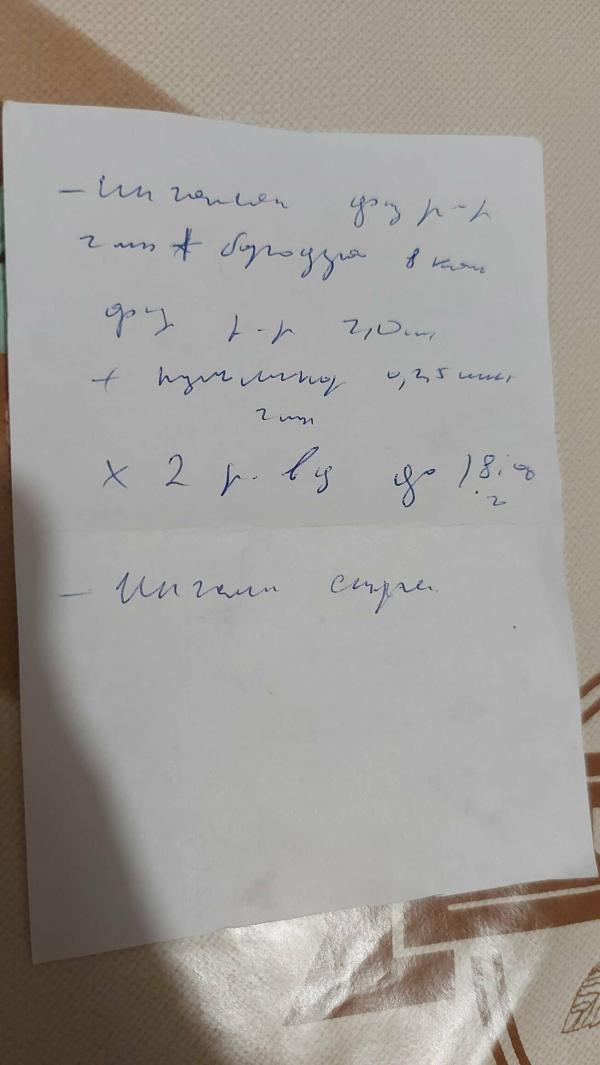 - Ингаляц физ р-р
2 мл + беродуал 8 кап
физ р-р 2,0 мл
+ пульмикорт 0,25 мкг
2 мл
х 2 р. в д до 18:00
- Ингали